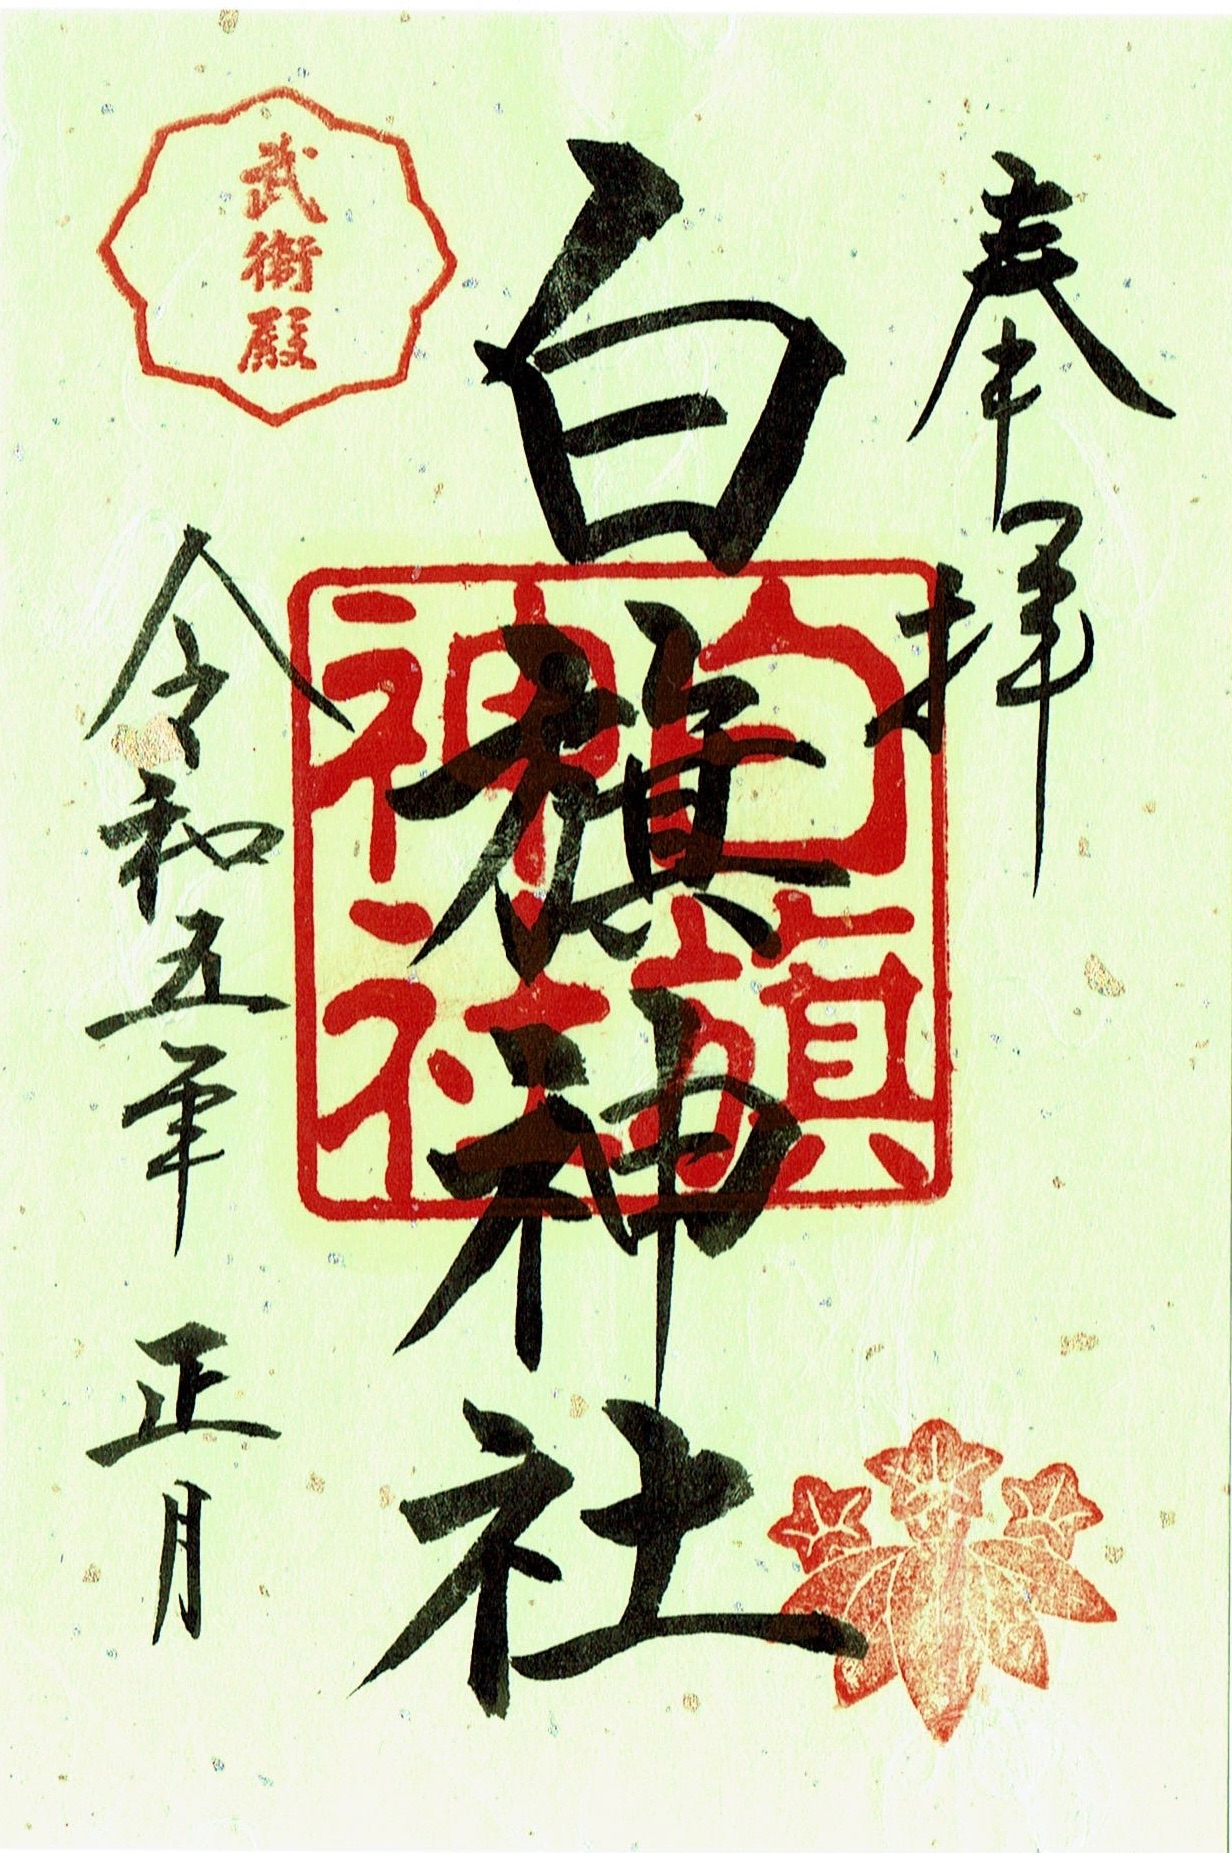 奉拝
白旗神社
白旗
神社
武衛殿
令和五年 正月